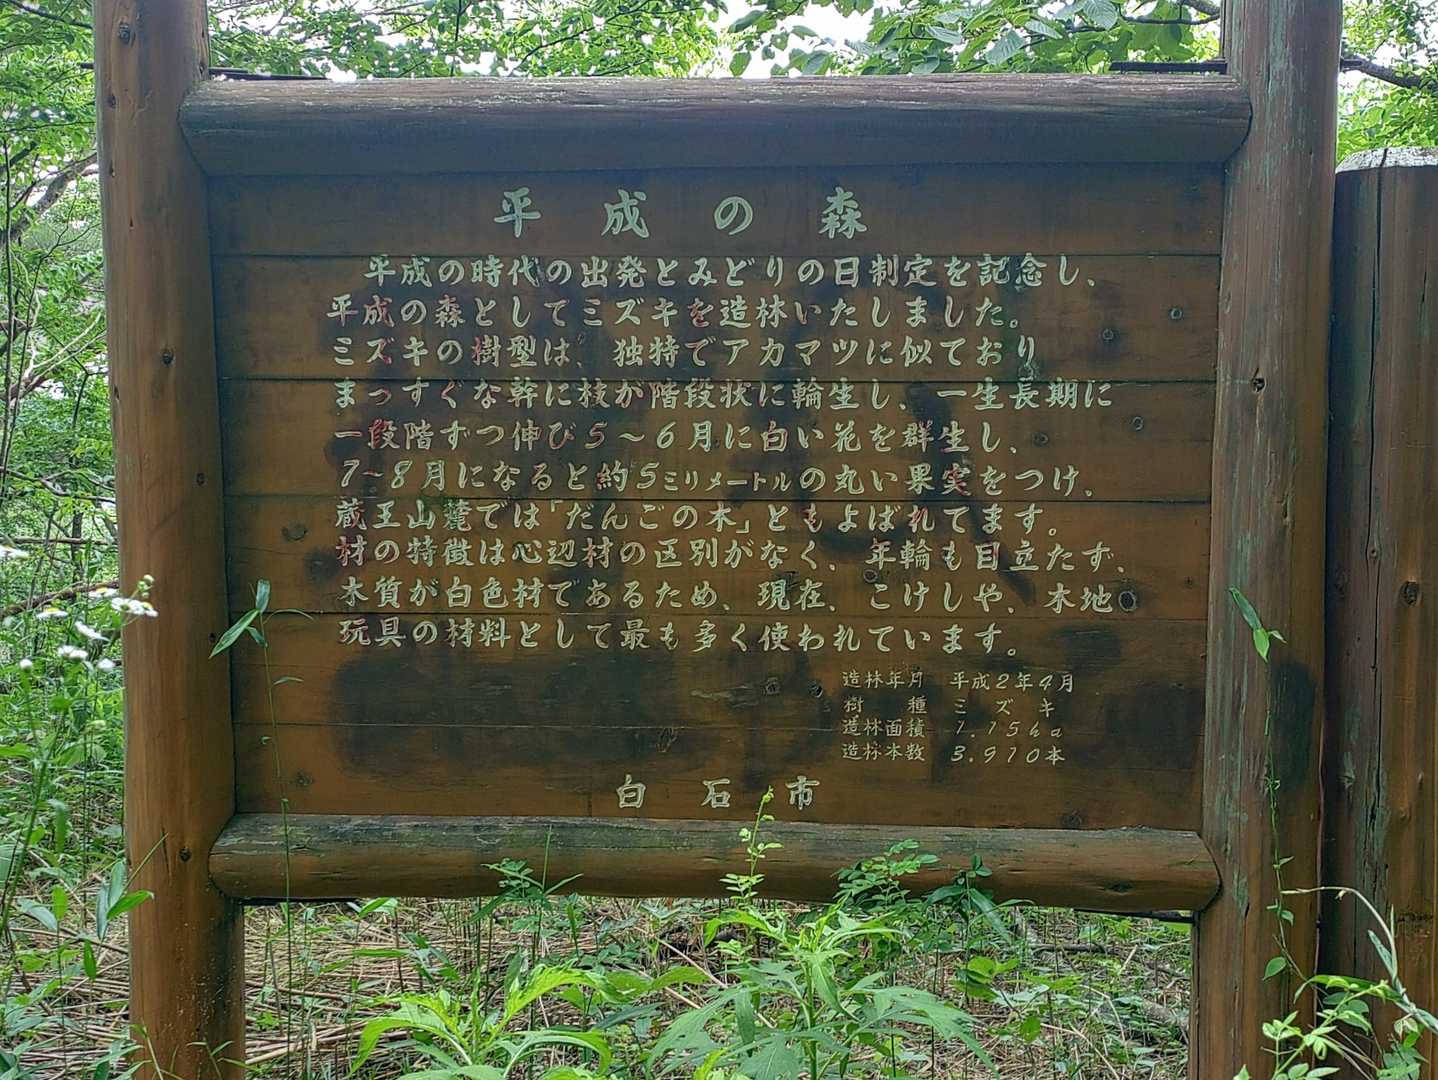 平成の森
平成の時代の出発とみどりの日制定を記念し、
平成の森としてミズキを造林いたしました。
ミズキの樹型は、独特でアカマツに似ており
まっすぐな幹に枝が階段状に輪生し、一生長期に
一段階ずつ伸び5～6月に白い花を群生し、
7～8月になると約5ミリメートルの丸い果実をつけ、
蔵王山麓では「だんごの木」ともよばれてます。
材の特徴は心辺材の区別がなく、年輪も目立たず、
木質が白色材であるため、現在、こけしや、木地
玩具の材料として最も多く使われています。
造林年月 平成2年4月
樹種 ミズキ
造林面積 1.15ha
造林本数 3.910本
白石市